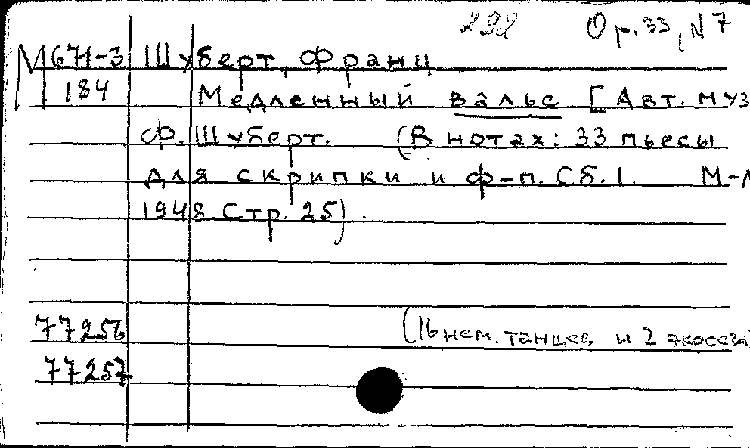 292 Ор. 33, № 7
М 671-3 Шуберт, Франц
184 Медленный вальс [Авт. муз
Ф. Шуберт. (В нотах: 33 пьесы
для скрипки и ф-п. Сб. 1. М-Л
1948 Стр. 25).
77256 (16 нем. танцев и 2 экосеза
77257